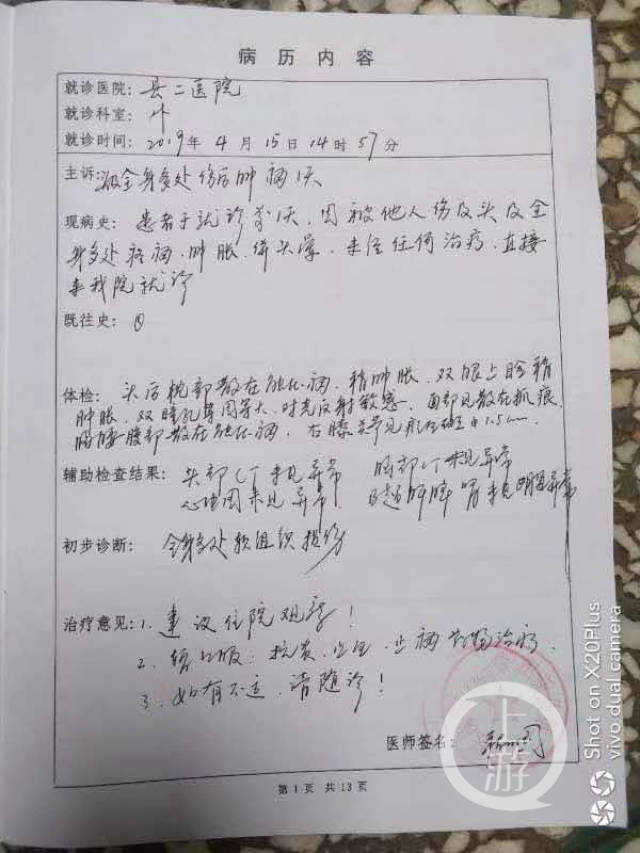 病历内容
就诊医院：县二医院
就诊科室：外
就诊时间：2019年4月15日14时57分
主诉：全身多处伤后肿痛1天
现病史：患者于就诊前1天，因被他人伤及头及全
身多处疼痛、肿胀，伴头晕，未经任何治疗，直接
来我院就诊
既往史：
体检：头后枕部散在触压痛，稍肿胀，双眼上睑稍
肿胀，双瞳孔等圆等大，对光反射敏感，面部见散在抓痕，
腰部散在触压痛，右膝 见 1.5cm
辅助检查结果：头部CT未见异常 胸部CT未见异常
心电图未见异常 B超肝脾胃未见明显异常
初步诊断：全身多处软组织损伤
治疗意见：1、建议住院观察！
2、 口服：抗炎、 止痛药物治疗
3、如有不适，请随诊！
医师签名：
第1页 共13页
上游
Shot on X20Plus
vivo dual camera